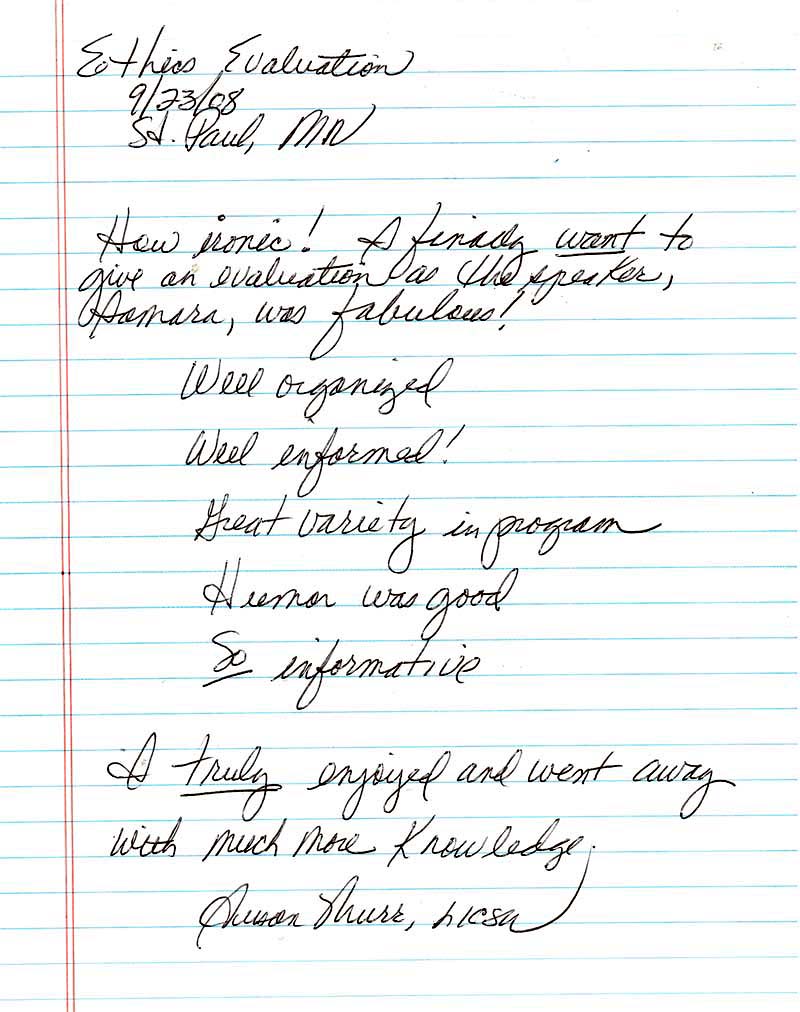 Ethics Evaluation
9/23/08
St. Paul, MN
How ironic! I finally want to
give an evaluation as the speaker,
Tamara, was fabulous!
Well organized
Well informed!
Great variety in program
Humor was good
So informative
I truly enjoyed and went away
with much more knowledge.
Susan LICSW